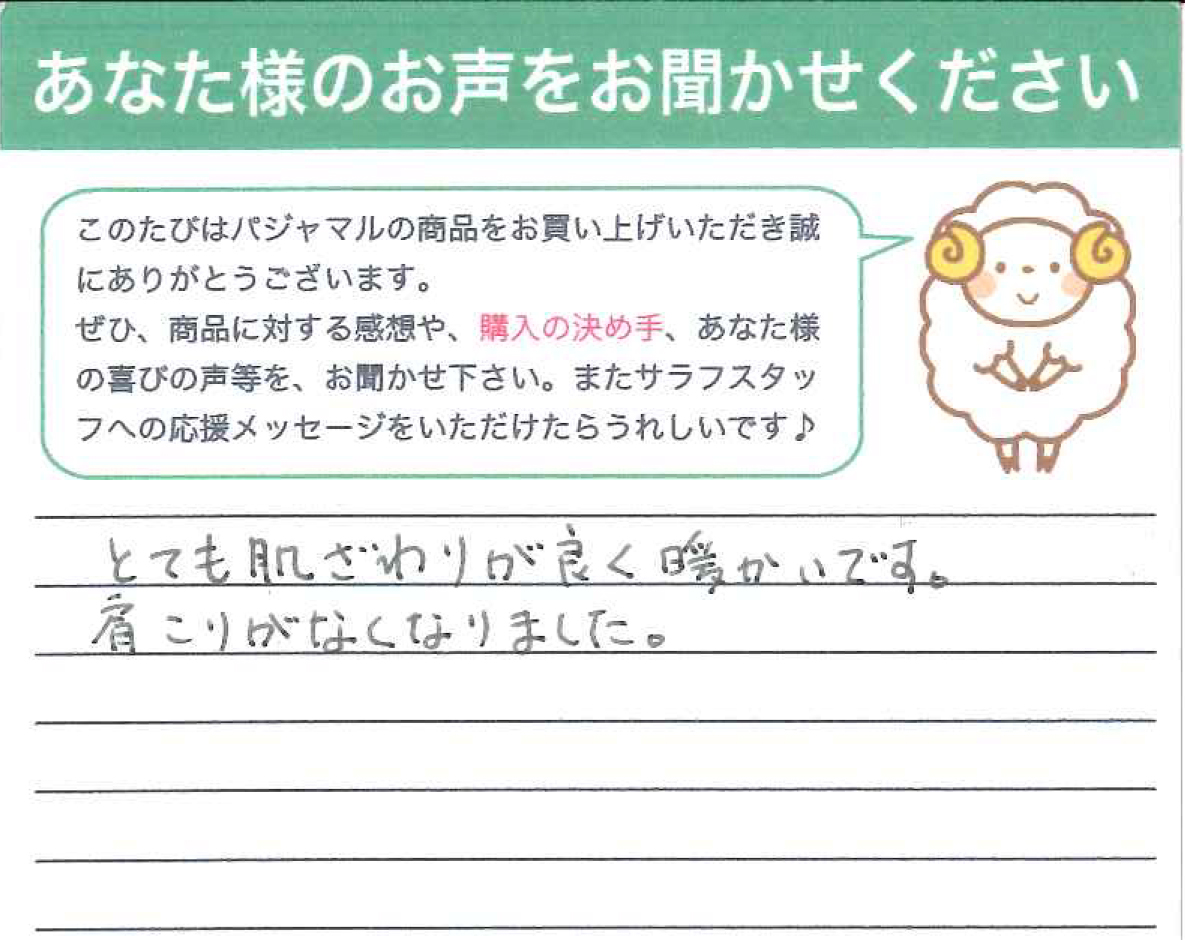 あなた様のお声をお聞かせください
このたびはパジャマルの商品をお買い上げいただき誠
にありがとうございます。
ぜひ、商品に対する感想や、購入の決め手、あなた様
の喜びの声等を、お聞かせ下さい。またサラフスタッ
フへの応援メッセージをいただけたらうれしいです♪
とても肌ざわりが良く暖かいです。
肩こりがなくなりました。